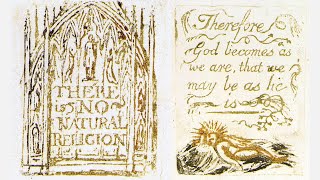 THERE
is NO
NATURAL
RELIGION
Therefore
God becomes as
we are, that we
may be as he
is